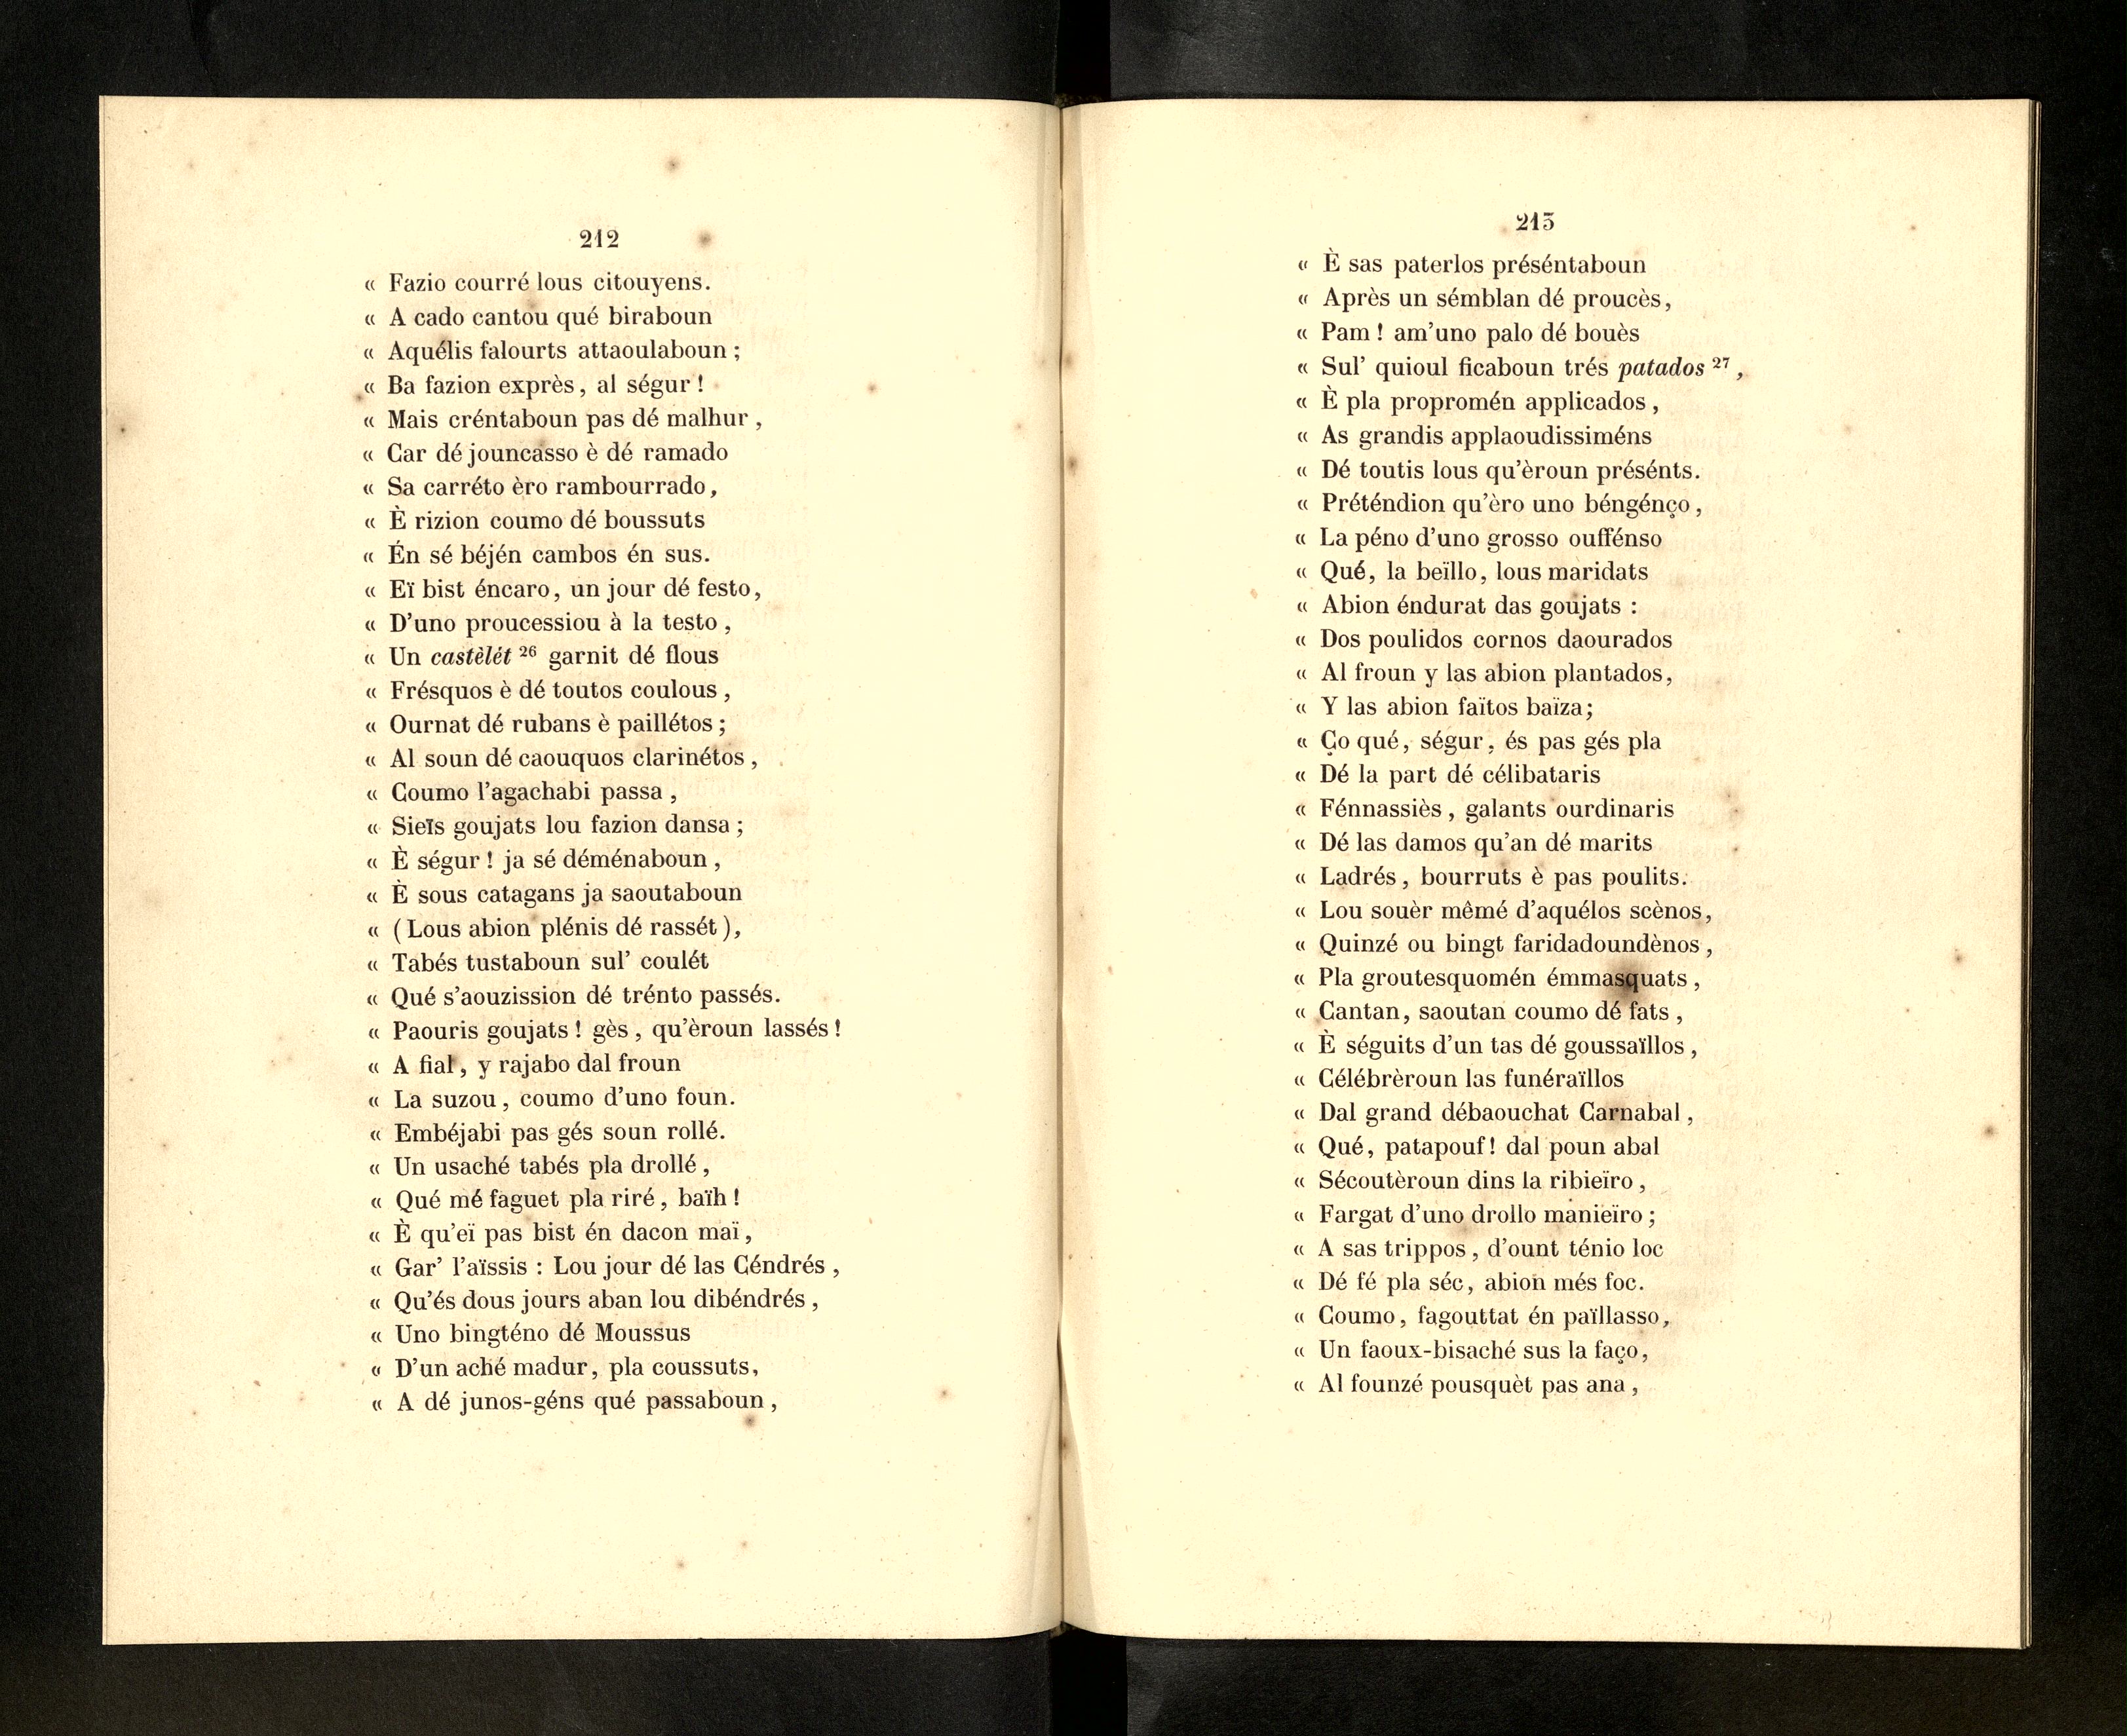 212
« Fazio courré lous citouyens.
« A cado cantou qué biraboun
« Aquélis falourts attaoulaboun ;
« Ba fazion exprès, al ségur !
« Mais créntaboun pas dé malhur ,
« Car dé jouncasso è dé ramado
« Sa carréto èro rambourrado,
« È rizion coumo dé boussuts
« Én sé béjén cambos én sus.
« Eï bist éncaro, un jour dé festo,
« D'uno proucessiou à la testo ,
« Un castèlét 26 garnit dé flous
« Frésquos è dé toutos coulous ,
« Ournat dé rubans è paillétos ;
« Al soun dé caouquos clarinétos ,
« Coumo l'agachabi passa ,
« Sieïs goujats lou fazion dansa ;
« È ségur ! ja sé déménaboun ,
« È sous catagans ja saoutaboun
« (Lous abion plénis dé rassét ),
« Tabés tustaboun sul' coulét
« Qué s'aouzission dé trénto passés.
« Paouris goujats ! gès , qu'èroun lassés !
« A fial, y rajabo dal froun
« La suzou, coumo d'uno foun.
« Embéjabi pas gés soun rollé.
« Un usaché tabés pla drollé ,
« Qué mé faguet pla riré, baïh !
« È qu'eï pas bist én dacon maï ,
« Gar' l'aïssis : Lou jour dé las Céndrés ,
« Qu'és dous jours aban lou dibéndrés ,
« Uno bingténo dé Moussus
« D'un aché madur, pla coussuts,
« A dé junos-géns qué passaboun ,
213
« È sas paterlos préséntaboun
« Après un sémblan dé proucès,
« Pam ! am'uno palo dé bouès
« Sul' quioul ficaboun trés patados 27 ,
« È pla propromén applicados ,
« As grandis applaoudissiméns
« Dé toutis lous qu'èroun présénts.
« Préténdion qu'èro uno béngénço ,
« La péno d'uno grosso oufénso
« Qué, la beïllo, lous maridats
« Abion éndurat das goujats :
« Dos poulidos cornos daourados
« Al froun y las abion plantados,
« Y las abion faïtos baïza;
« Ço qué, ségur, és pas gés pla
« Dé la part dé célibataris
« Fénnassiès , galants ourdinaris
« Dé las damos qu'an dé marits
« Ladrés , bourruts è pas poulits.
« Lou souèr mêmé d'aquélos scènos,
« Quinzé ou bingt faridadoundènos ,
« Pla groutesquomén émmasquats ,
« Cantan, saoutan coumo dé fats ,
« È séguits d'un tas dé goussaïllos ,
« Célébrèroun las funéraïllos
« Dal grand débaouchat Carnabal ,
« Qué, patapouf! dal poun abal
« Sécoutèroun dins la ribieïro ,
« Fargat d'uno drollo manieïro ;
« A sas trippos , d'ount ténio loc
« Dé fé pla séc, abion més foc.
« Coumo, fagouttat én païllasso,
« Un faoux-bisaché sus la faço,
« Al founzé pousquèt pas ana ,